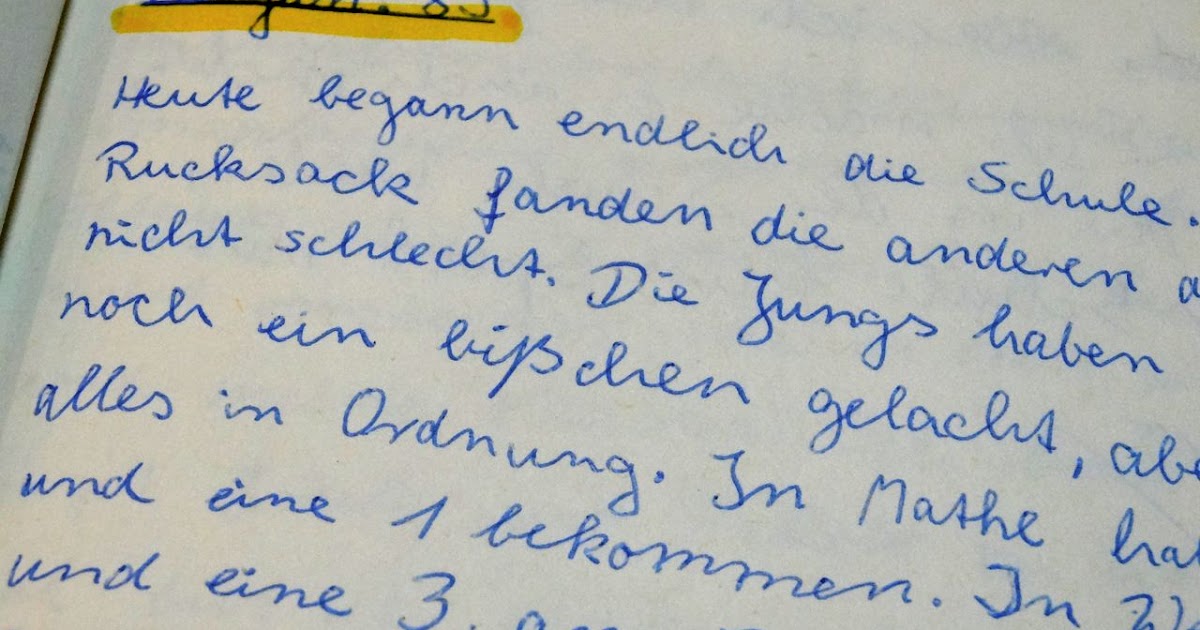 Heute begann endlich die Schule.
Rucksack fanden die anderen
nicht schlecht. Die Jungs haben
noch ein bißchen gelacht, abe
alles in Ordnung. In Mathe ha
und eine 1 bekommen. In
und eine 3.